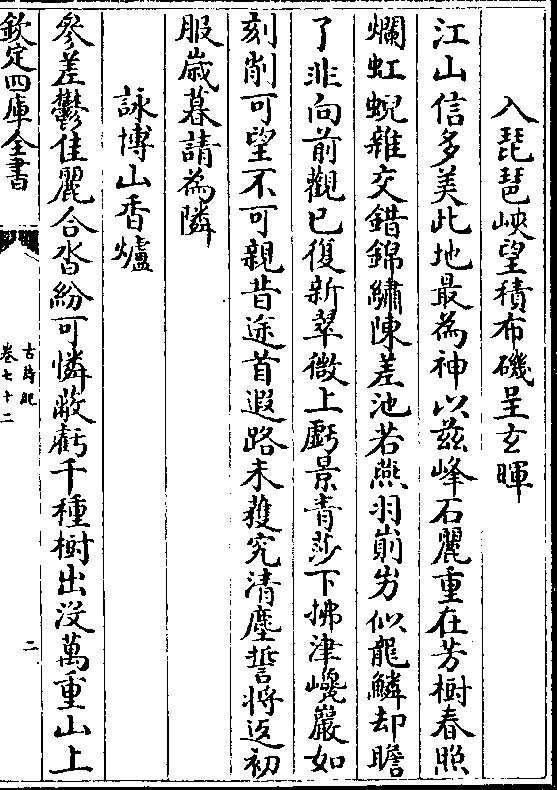 入琵琶峽望積布磯呈玄暉
江山信多美此地最為神以茲峰石麗重在芳樹春照
爛虹蜺雜交錯錦繡陳差池若燕羽崱屴似龍鱗却瞻
了非向前觀已復新翠微上虧景青莎下拂津巉巖如
刻削可望不可親昔途首遐路未獲究清塵誓將返初
服歲暮請為隣
詠博山香爐
參差鬱佳麗合沓紛可憐蔽虧千種樹出沒萬重山上
欽定四庫全書
古詩紀
卷七十二
二